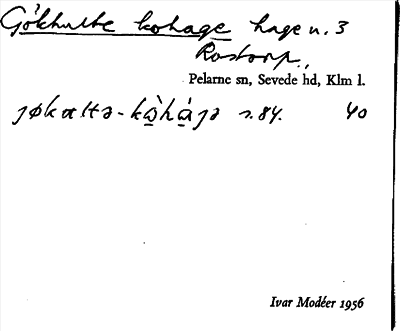 Gökhulte kohage hage n. 3
Rostorp,
Pelarne sn, Sevede hd, Klm l.
s. 84. 40
Ivar Modéer 1956